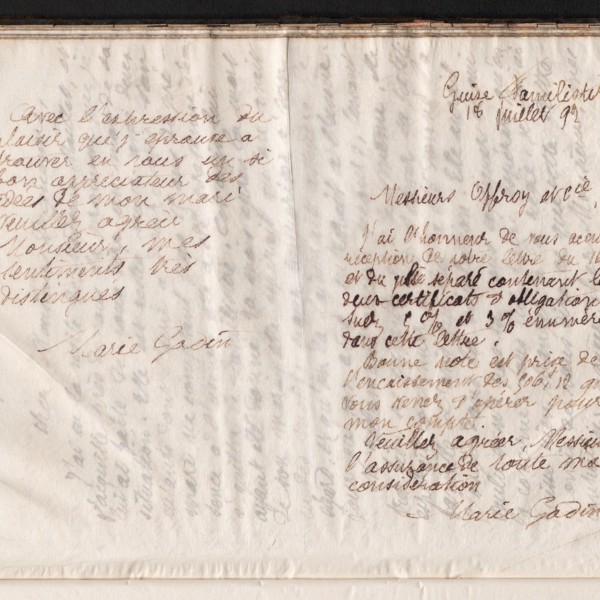 Avec l'expression du
plaisir que j'éprouve à
trouver en vous un si
bon appréciateur des
idées de mon mari
veuillez agréer
Monsieur, mes
sentiments très
distingués
Marie Godin
Guise Familistère
18 juillet 92
Messieurs Offroy et Cie,
J'ai l'honneur de vous accu
réception de votre lettre du
et du pli séparé contenant le
deux certificats d'obligation
Suez 5 % et 3 % énumér
dans cette lettre.
Bonne note est prise de
l'encaissement des 506,12 qu
vous venez d'opérer pour
mon compte.
Veuillez agréer, Messieu
l'assurance de toute ma
considération
Marie Godin